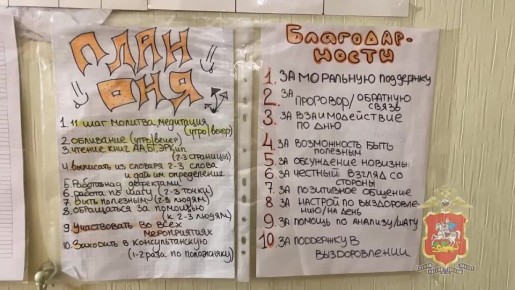 ПЛАН
ДНЯ
1. 11 шаг молитва, медитация
(утро|вечер)
2. обливание (утро|вечер)
3. чтение книг АА, БГ, ЭРК ип
(2-3 страницы)
4. выписать из словаря 2-3 слова
и дай им определение
5. Работа над дефектами
6. работа по шагу (2-3 точки)
7. Быть полезным (2-3 людям)
8. обращаться за помощью
(к 2-3 людям)
9. Участвовать во всех
мероприятиях
10. Заходить в консультанскую
(1-2 раза по положняку)
БЛАГОДАР-
НОСТИ
1. ЗА МОРАЛЬНУЮ ПОДДЕРЖКУ
2. ЗА ПРОГОВОР/ОБРАТНУЮ
СВЯЗЬ
3. ЗА ВЗАИМОДЕЙСТВИЕ
ПО ДНЮ
4. ЗА ВОЗМОЖНОСТЬ БЫТЬ
ПОЛЕЗНЫМ
5. ЗА ОБСУЖДЕНИЕ НОВИЗНЫ
6. ЗА ЧЕСТНЫЙ ВЗГЛЯД СО
СТОРОНЫ
7. ЗА ПОЗИТИВНОЕ ОБЩЕНИЕ
8. ЗА НАСТРОЙ ПО ВЫЗДОРОВЛЕ-
НИЮ/НА ДЕНЬ
9. ЗА ПОМОЩЬ ПО АНАЛИЗУ/ШАГУ
10. ЗА ПОДДЕРЖКУ В
ВЫЗДОРОВЛЕНИИ